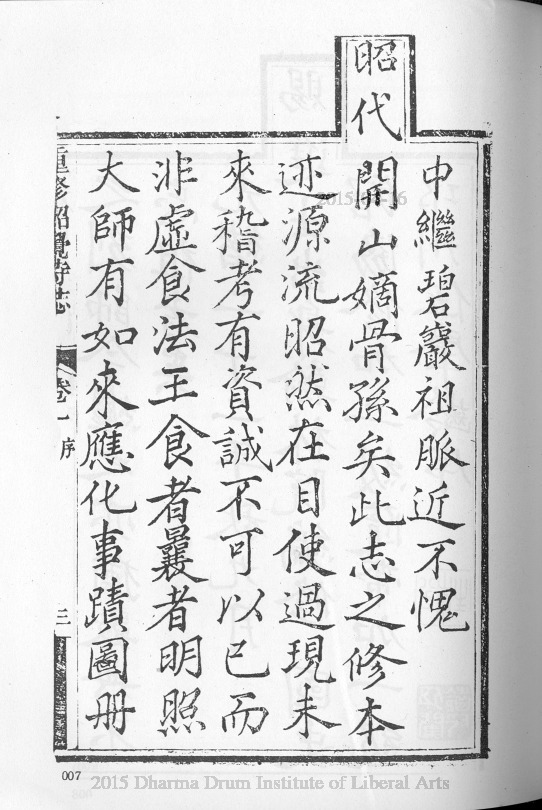 中繼碧巖祖脈近不愧
昭代開山嫡骨孫矣此志之修本
迹源流昭然在目使過現未
來稽考有資誠不可以已而
非虛食法王食者曩者明照
大師有如來應化事蹟圖冊
重修昭覺寺志 卷一 序 三
007
2015 Dharma Drum Institute of Liberal Arts